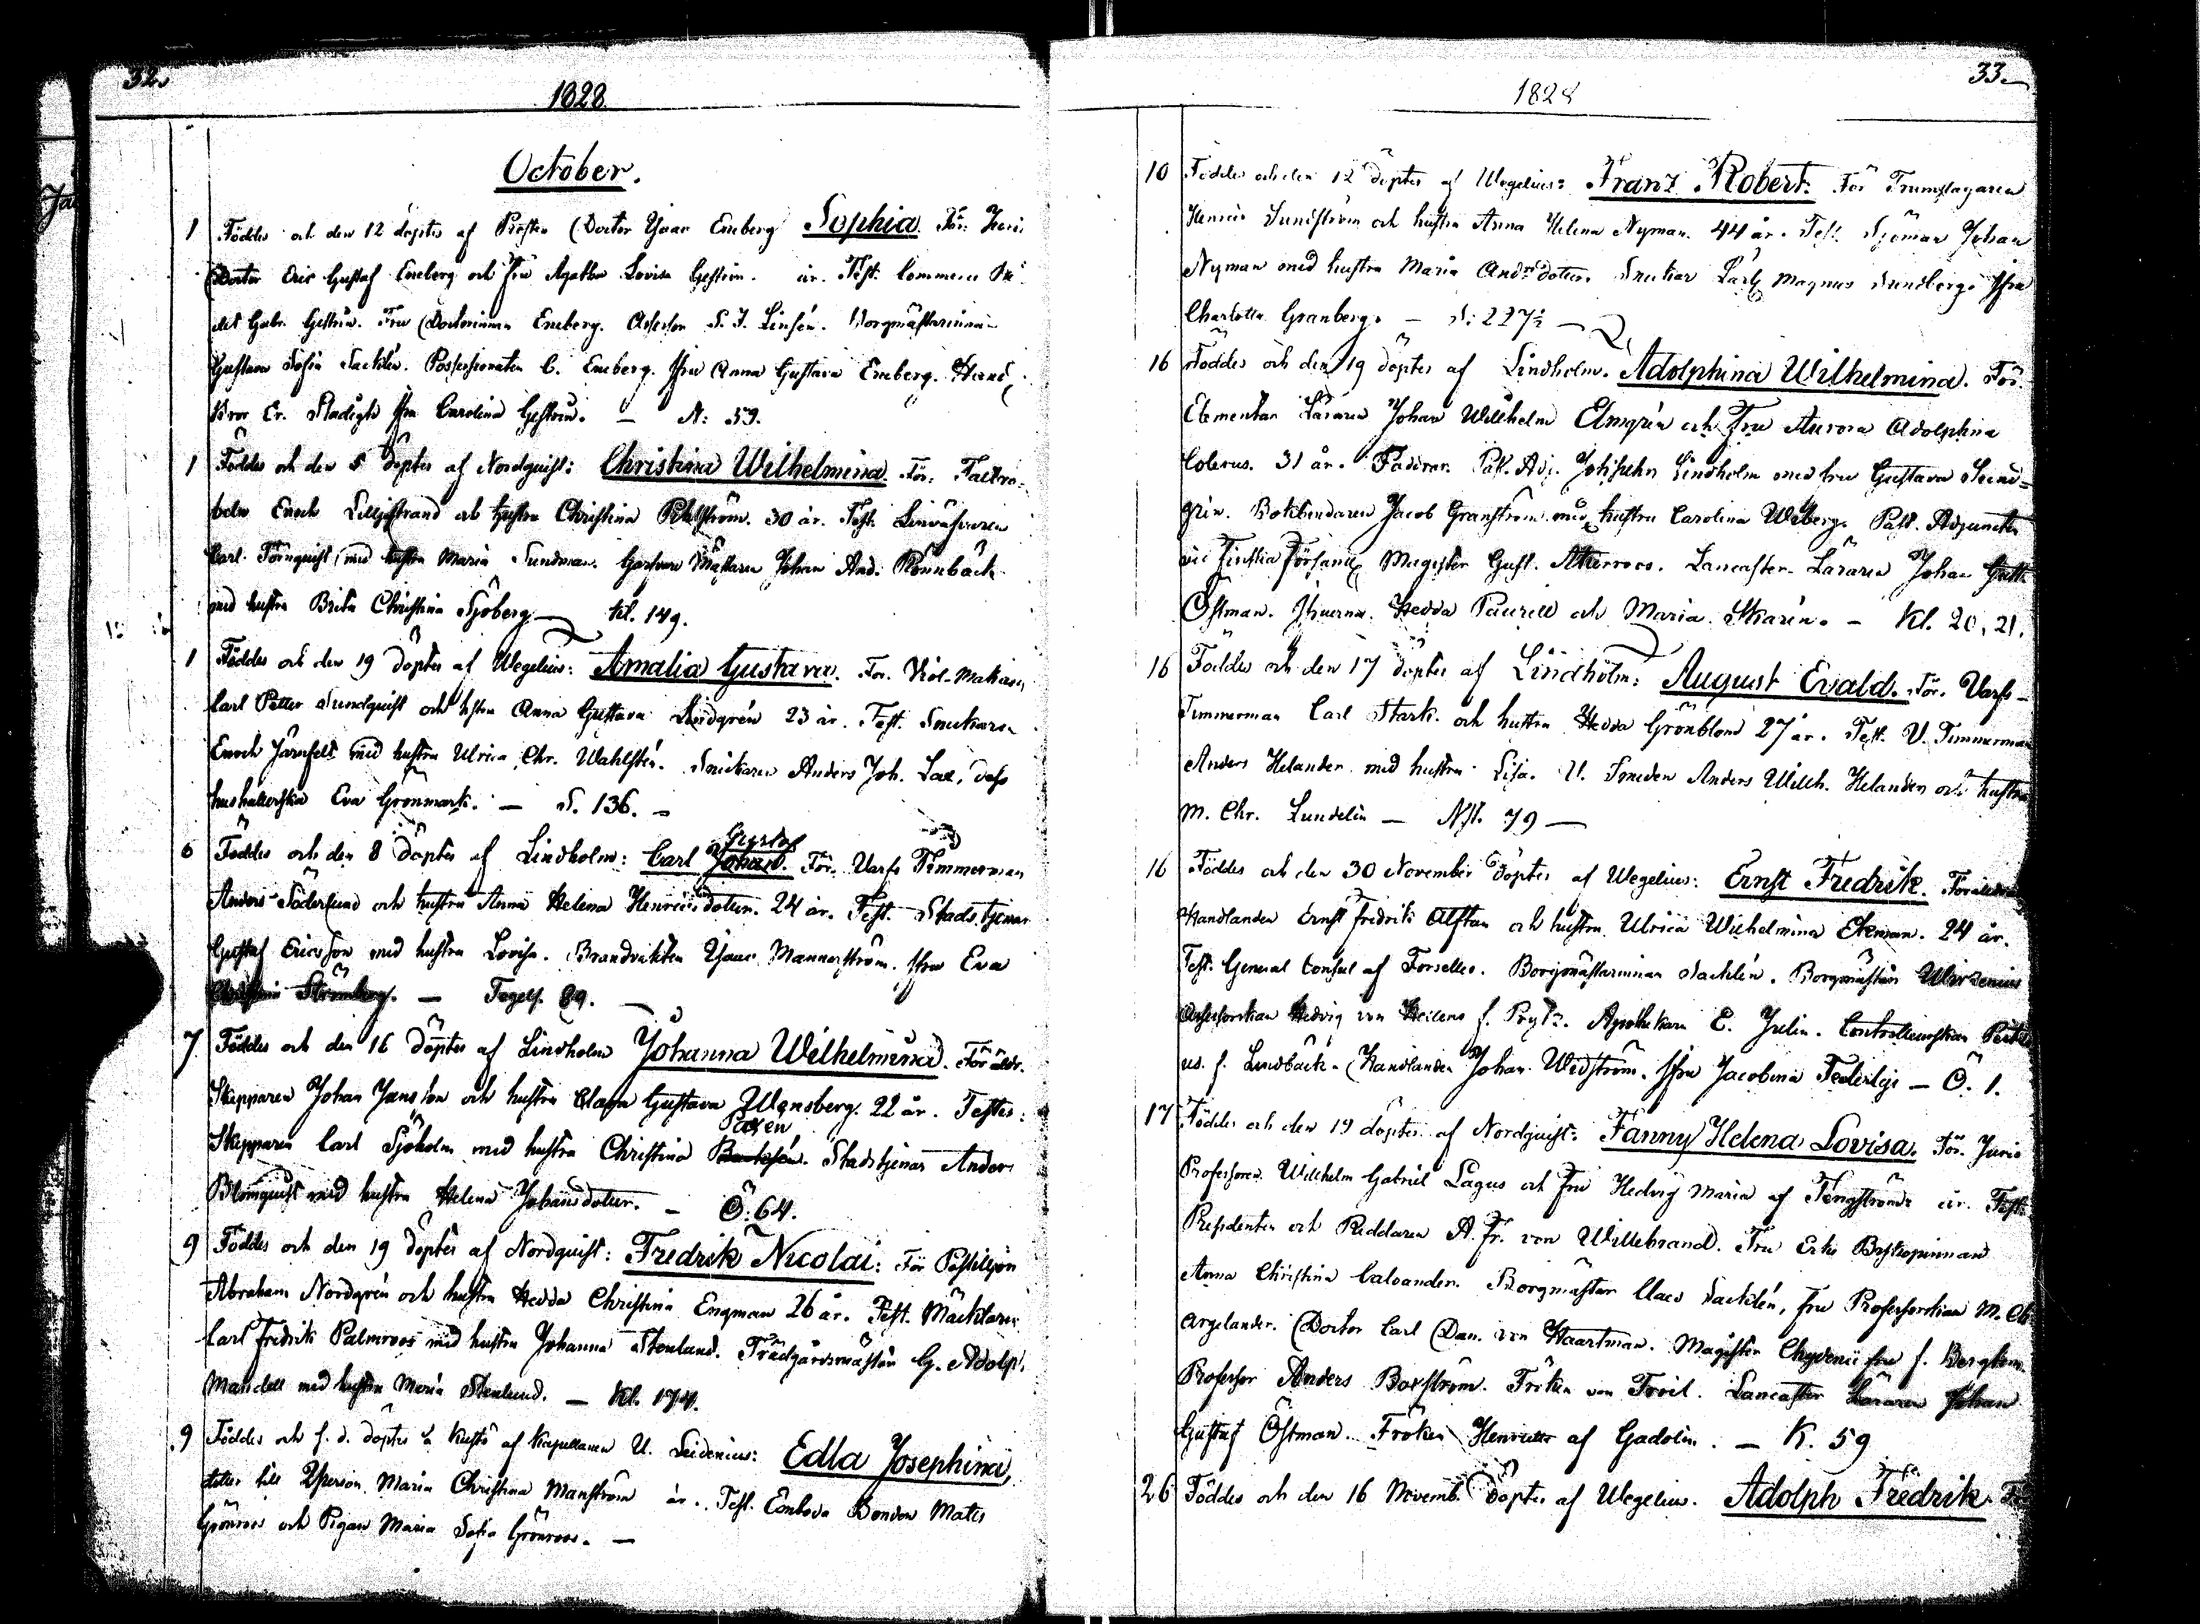 32.
1828
October.
1 Föddes och den 12 döptes af Prosten Doctor Isaac Eneberg Sophia. För: Juris
Doctor Eric Gustaf Eneberg och Fru Agatha Lovisa Gestrin. år. Test. Commerce
det Gabr. Gestrin. Fru Doctorinnan Eneberg. Assessor S. J. Linsén. Borgmästarinnan
Gustava Sofia Sacklén. Possessionaten C. Eneberg. Jfru Anna Gustava Eneberg.
Er. Stadigh Jfru Carolina Gestrin. — N: 59.
1 Föddes och den 5 döptes af Nordquist: Christina Wilhelmina. För:
Enoch Liljestrand och hustru Christina Pihlström. 30 år. Test. Linväfvaren
Carl Törnquist med hustru Maria Sundman. Garfvare Mästaren Johan And. Rönnbäck
med hustru Brita Christina Sjöberg — Kl. 149.
1 Föddes och den 19 döptes af Wegelius: Amalia Gustava. För. Viol. Makaren
Carl Petter Sundquist och hustru Anna Gustava Lindgrén 23 år. Test. Snickaren
Enoch Järnfelt med hustru Ulrica Chr. Wahlstén. Snickaren Anders Joh. Lax, dess
hushållerska Eva Grönmark. — S. 136. —
6 Föddes och den 8 döptes af Lindholm: Carl Johan. Gustaf För. Varfs Timmerman
Anders Söderlund och hustru Anna Helena Henricsdotter. 24 år. Test. Stads tjenar
Gustaf Ericsson med hustru Lovisa. Brandvakten Isaac Mannerström. Jfru Eva
Christina Strömberg. — Tegels. 89. —
7 Föddes och den 16 döptes af Lindholm Johanna Wilhelmina. Föräldr.
Skepparen Johan Jansson och hustru Clara Gustava Wensberg. 22 år. Testes:
Paxen
Skepparen Carl Sjöholm med hustru Christina. Stadstjenar Anders
Blomquist med hustru Helena Johansdotter. — Ö. 64.
9 Föddes och den 19 döptes af Nordquist: Fredrik Nicolai: För Postiljon
Abraham Nordgrén och hustru Hedda Christina Engman 26 år. Test. Mäcklaren
Carl Fredrik Palmroos med hustru Johanna Stenlund. Trädgårdsmästaren G. Adolph
Mandell med hustru Maria Stenlund. — Kl. 174.
9 Föddes och s. d. döptes i Kustö af Kapellanen U. Leidenius: Edla Josephina,
dotter till Qperson Maria Christina Manström år. Test. Bonden Matts
Grönroos och Pigan Maria Sofia Grönroos. —
33.
1828
10 Föddes och den 12 döptes af Wegelius: Franz Robert. För Trumslagaren
Henric Sundström och hustru Anna Helena Nyman. 44 år. Test. Sjöman Johan
Nyman med hustru Maria Andersdotter. Snickar Carl Magnus Sundberg. Jfru
Charlotta Granberg. — S: 227½ —
16 Föddes och den 19 döptes af Lindholm. Adolphina Wilhelmina. För.
Elementar Läraren Johan Willhelm Elmgrén och Fru Aurora Adolphina
Colerus. 31 år. Faddrar. Past. Adj. Lindholm med fru Gustava
grén. Bokbindaren Jacob Granström med hustru Carolina Weberg. Past. Adjuncten
vid Finska Församl. Magister Gust. Akerroos. Lancaster Läraren Johan Gust.
Östman. Jfruerna Hedda Paurell och Maria Skarén. — Kl. 20, 21.
16 Föddes och den 17 döptes af Lindholm: August Evald. För. Varfs-
Timmerman Carl Stark och hustru Hedda Grönblom 27 år. Test. V. Timmerman
Anders Helander med hustru Lisa. V. Smeden Anders Willh. Helander och hustru
M. Chr. Lundelin — Nst. 79 —
16 Föddes och den 30 November döptes af Wegelius: Ernst Fredrik. Föräldrar
Handlanden Ernst Fredrik Alftan och hustru Ulrica Wilhelmina Ekman. 24 år.
Test. General Consul af Forselles. Borgmästarinnan Sacklén. Borgmästare Wirzenius
Assessorskan Hedvig von Heidens f. Prytz. Apothekaren E. Julin. Controlleurskan
us. f. Lindbäck. Handlanden Johan Widström. Jfru Jacobina Federley — Ö. 1.
17 Föddes och den 19 döptes af Nordquist: Fanny Helena Lovisa. För. Juris
Professoren Willhelm Gabriel Lagus och Fru Hedvig Maria af Tengström år. Test.
Presidenten och Riddaren A. Fr. von Willebrand. Fru Erke Biskopinnan
Anna Christina Caloander. Borgmästar Claes Sacklén, Fru Professorskan M. Ch
Argelander. Doctor Carl Dan. von Haartman. Magister Chydenii fru f. Bergbom.
Professor Anders Boxström. Fröken von Troil. Lancaster Läraren Johan
Gustaf Östman. Fröken Henriette af Gadolin. — K. 59
26 Föddes och den 16 Novemb. döptes af Wegelius. Adolph Fredrik. För